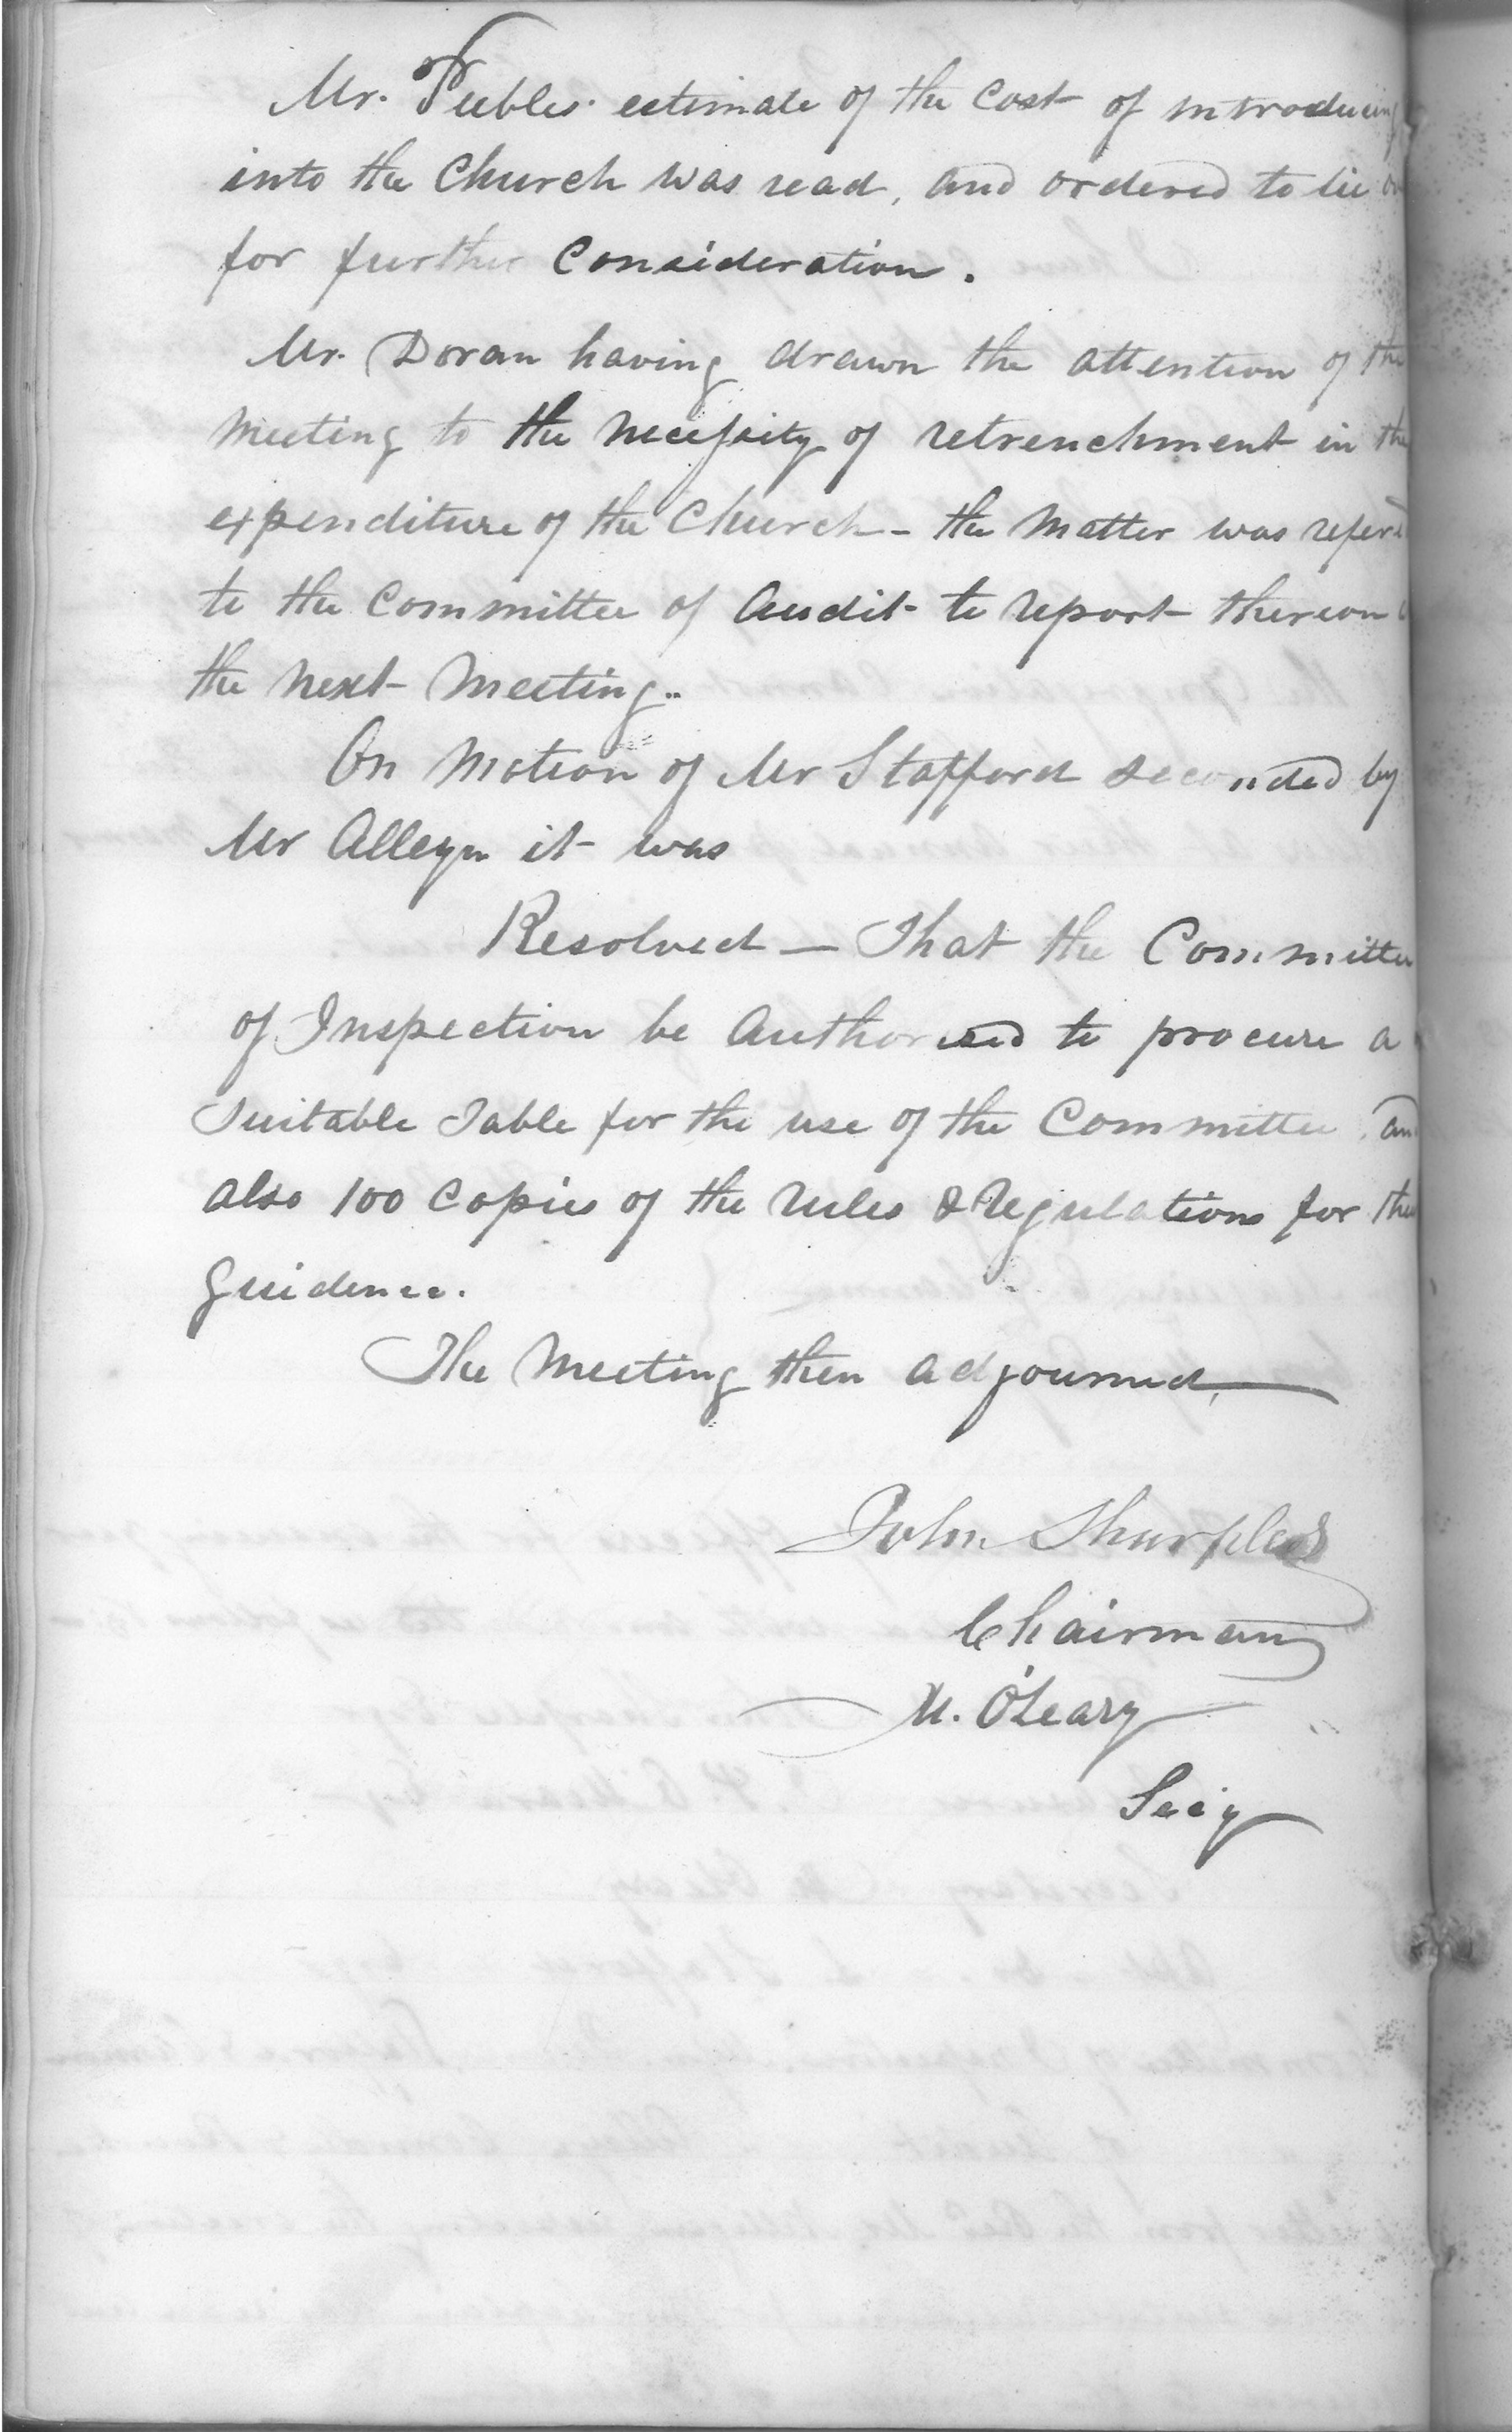 Mr. Peebles' estimate of the Cost of introducing
into the Church was read, and ordered to lie
for further Consideration.
Mr. Doran having drawn the attention of the
Meeting to the necessity of retrenchment in the
expenditure of the Church - the Matter was refer'd
to the Committee of Audit to report thereon
the next Meeting..
On Motion of Mr Stafford seconded by
Mr Alleyn it was
Resolved — That the Committee
of Inspection be Authorised to procure a
Suitable Table for the use of the Committee, and
also 100 Copies of the rules & regulations for
Guidence.
The Meeting then adjourned,
John Sharples
Chairman
M. O'Leary
Secy